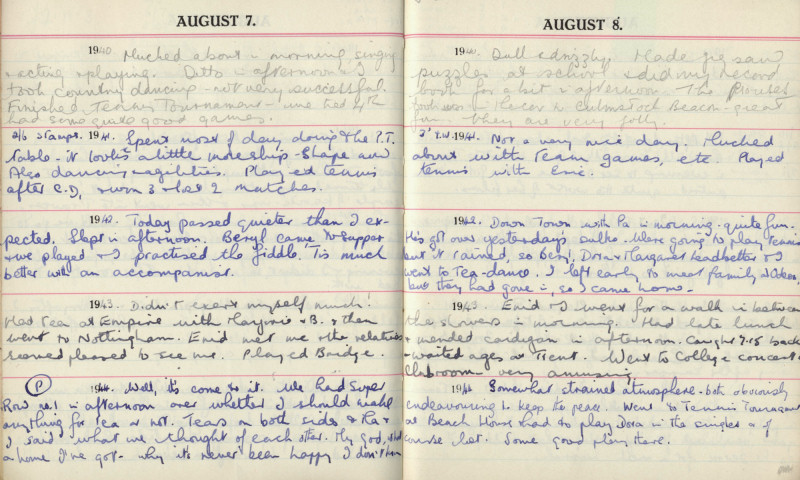 AUGUST 7.
1940 Mucked about in morning singing
& acting & playing. Ditto in afternoon & I
took Country dancing - not very successful.
Finished Tennis Tournament - we tied 4th
had some quite good games.
2/6 stamps. 1941. Spent most of day doing the P.T.
table - it looks a little more ship-shape and
Also dancing & agilities. Played tennis
after C.D, & won 3 & lost 2 matches.
1942. Today passed quieter than I ex-
pected. Slept in afternoon. Beryl came to supper
& we played & I practised the fiddle. Tis much
better with an accompanist.
1943. Didn't exert myself much!
Had Tea at Empire with Marjorie & B. & then
went to Nottingham. Enid met me & the relatives
seemed pleased to see me. Played Bridge.
P 1944. Well, it's come to it. We had super
Row in afternoon over whether I should make
anything for tea or not. Tears on both sides & Ma &
I said what we thought of each other. My god, what
a home I've got - why it's never been happy I don't know
AUGUST 8.
1940. Dull & drizzly. Made jig saw
puzzles at school & did my record
book for a bit in afternoon. The
took us in the car to Culmstock Beacon - great
fun. They are very jolly.
1941. Not a very nice day. Mucked
about with Team games, etc. Played
tennis with Eric.
1942. Down Town with Pa in morning - quite fun.
He's got over yesterday's sulks. Were going to play Tennis
but it rained, so Beryl, Dora & Margaret Leadbetter & I
went to Tea-dance. I left early to meet family at Odeon,
but they had gone in, so I came home.
1943. Enid & I went for a walk in between
the showers in morning. Had late lunch
& mended cardigan in afternoon. Caught 7.15 back
- waited ages at Trent. Went to College concert in
Clubroom very amusing.
1944 Somewhat strained atmosphere - both obviously
endeavouring to keep the peace. Went to Tennis Tournament
at Beach House & had to play Dora in the singles & of
course lost. Some good play there.